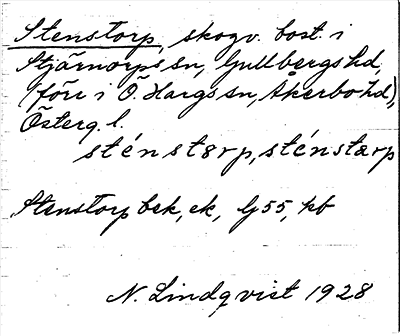 Stenstorp, skogv. bost. i
Stjärnorps sn, Gullbergs hd,
(förr i Ö. Hargs sn, Åkerbo hd),
Österg. l.
sténstərp, sténstærp
Stenstorp bek, ek, G 55, kb
N. Lindqvist 1928